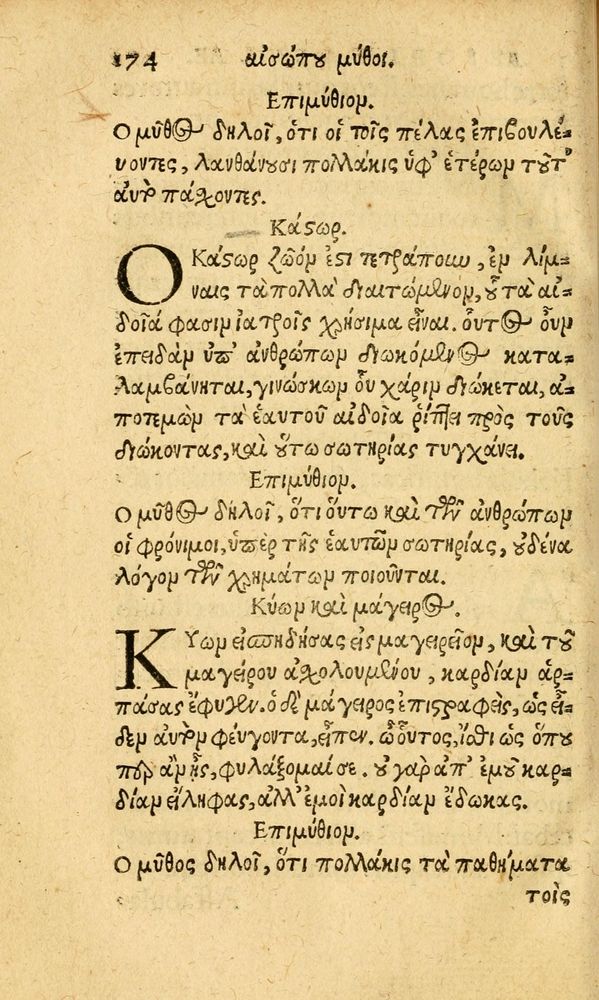 174 αἰσώπου μῦθοι.
Επιμύθιον.
Ο μῦθος δηλοῖ, ὅτι οἱ τοῖς πέλας ἐπιβουλέ-
υοντες, λανθάνουσι πολλάκις ὑφ' ἑτέρων τοῦτ'
αὐτὸ πάσχοντες.
Κάστωρ.
Ο Κάστωρ ζῶόν ἐστι τετράπουν, ἐν λίμ-
ναις τὰ πολλὰ διαιτώμενον, οὗ τὰ αἰ-
δοῖά φασιν ἰατροῖς χρήσιμα εἶναι. οὗτος οὖν
ἐπειδὰν ὑπ' ἀνθρώπων διωκόμενος κατα-
λαμβάνηται, γινώσκων οὗ χάριν διώκεται, ἀ-
ποτεμὼν τὰ ἑαυτοῦ αἰδοῖα ῥίπτει πρὸς τοὺς
διώκοντας, καὶ οὕτω σωτηρίας τυγχάνει.
Επιμύθιον.
Ο μῦθος δηλοῖ, ὅτι οὕτω καὶ τῶν ἀνθρώπων
οἱ φρόνιμοι, ὑπὲρ τῆς ἑαυτῶν σωτηρίας, οὐδένα
λόγον τῶν χρημάτων ποιοῦνται.
Κύων καὶ μάγειρος.
ΚΥων εἰσπηδήσας εἰς μαγειρεῖον, καὶ τοῦ
μαγείρου ἀσχολουμένου, καρδίαν ἁρ-
πάσας ἔφυγεν. ὁ δὲ μάγειρος ἐπιστραφεὶς, ὡς εἶ-
δεν αὐτὸν φεύγοντα, εἶπεν. ὦ οὗτος, ἴσθι ὡς ὅπου
περ ἂν ᾖς, φυλάξομαί σε. οὐ γὰρ ἀπ' ἐμοῦ καρ-
δίαν εἴληφας, ἀλλ' ἐμοὶ καρδίαν ἔδωκας.
Επιμύθιον.
Ο μῦθος δηλοῖ, ὅτι πολλάκις τὰ παθήματα
τοῖς